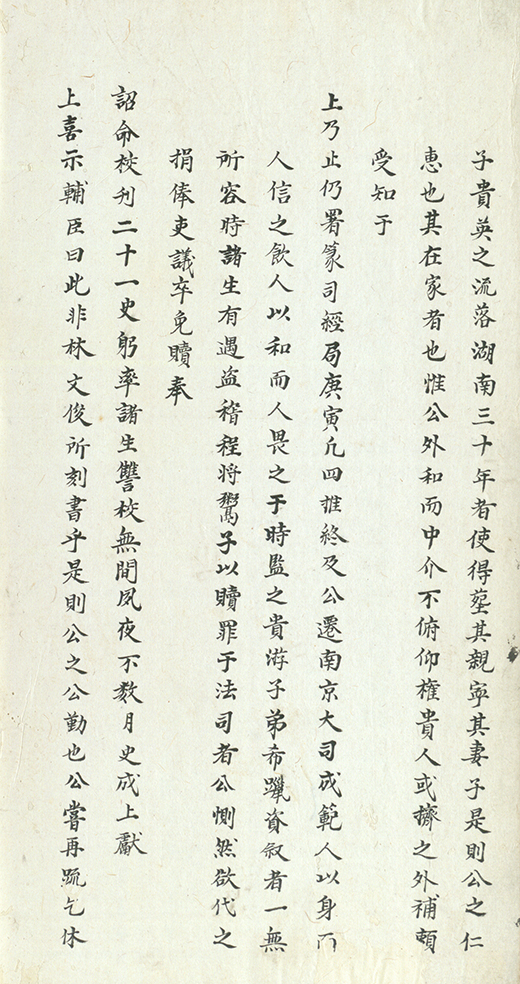 子貴英之流落湖南三十年者使得塟其親寧其妻子是則公之仁
惠也其在家者也惟公外和而中介不俯仰權貴人或擠之外補頼
受知于
上乃止仍署篆司經局庚寅凡四推終及公遷南京大司成範人以身而
人信之飲人以和而人畏之于時監之貴游子弟希躐資叙者一無
所容時諸生有遇盗稽程将鬻子以贖罪于法司者公惻然欲代之
捐俸吏議卒免贖奉
詔命校刋二十一史躬率諸生讐校無間夙夜不数月史成上獻
上喜示輔臣曰此非林文俊所刻書乎是則公之公勤也公嘗再䟽乞休